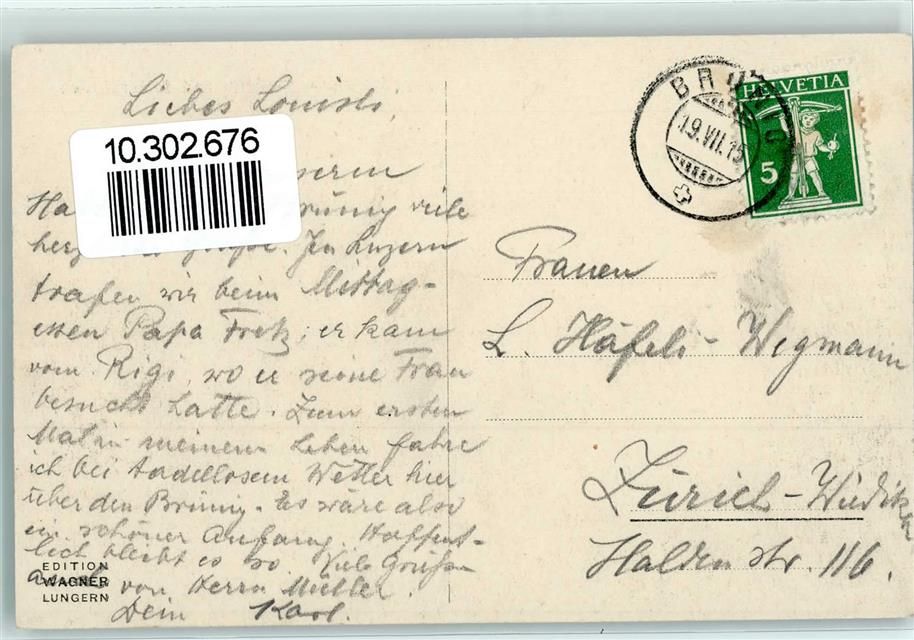 Liebes Louisli,
10.302.676
serm
Ha Brünig viele
herz Grüsse. In Luzern
trafen wir beim Mittag-
essen Papa Fretz, er kam
vom Rigi, wo er seine Frau
besucht hatte. Zum ersten
Mal in meinem Leben fahre
ich bei tadellosem Wetter hier
über den Brünig. Es wäre also
ein schöner Anfang. Hoffent-
lich bleibt es so. Viele Grüsse
auch von Herrn Müller.
Dein Karl.
EDITION
WAGNER
LUNGERN
BRÜNIG
19.VII.15
HELVETIA
5
Frauen
L. Häfeli-Wegmann
Zürich-Wiedikon
Haldenstr. 116.